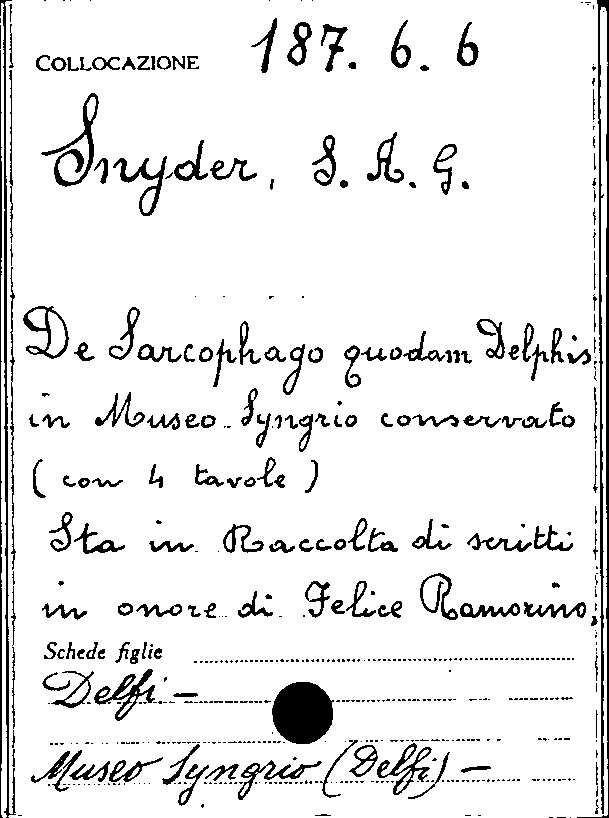 COLLOCAZIONE 187. 6. 6
Snyder, S. A. G.
De Sarcophago quodam Delphis
in Museo Syngrio conservato
( con 4 tavole )
Sta in Raccolta di scritti
in onore di Felice Ramorino.
Schede figlie
Delfi —
Museo Syngrio (Delfi) —